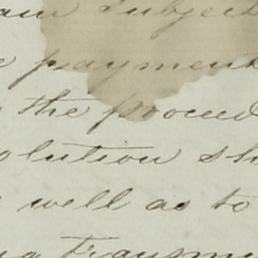 subject
payment
the proceed
olution sh
well as to
transm